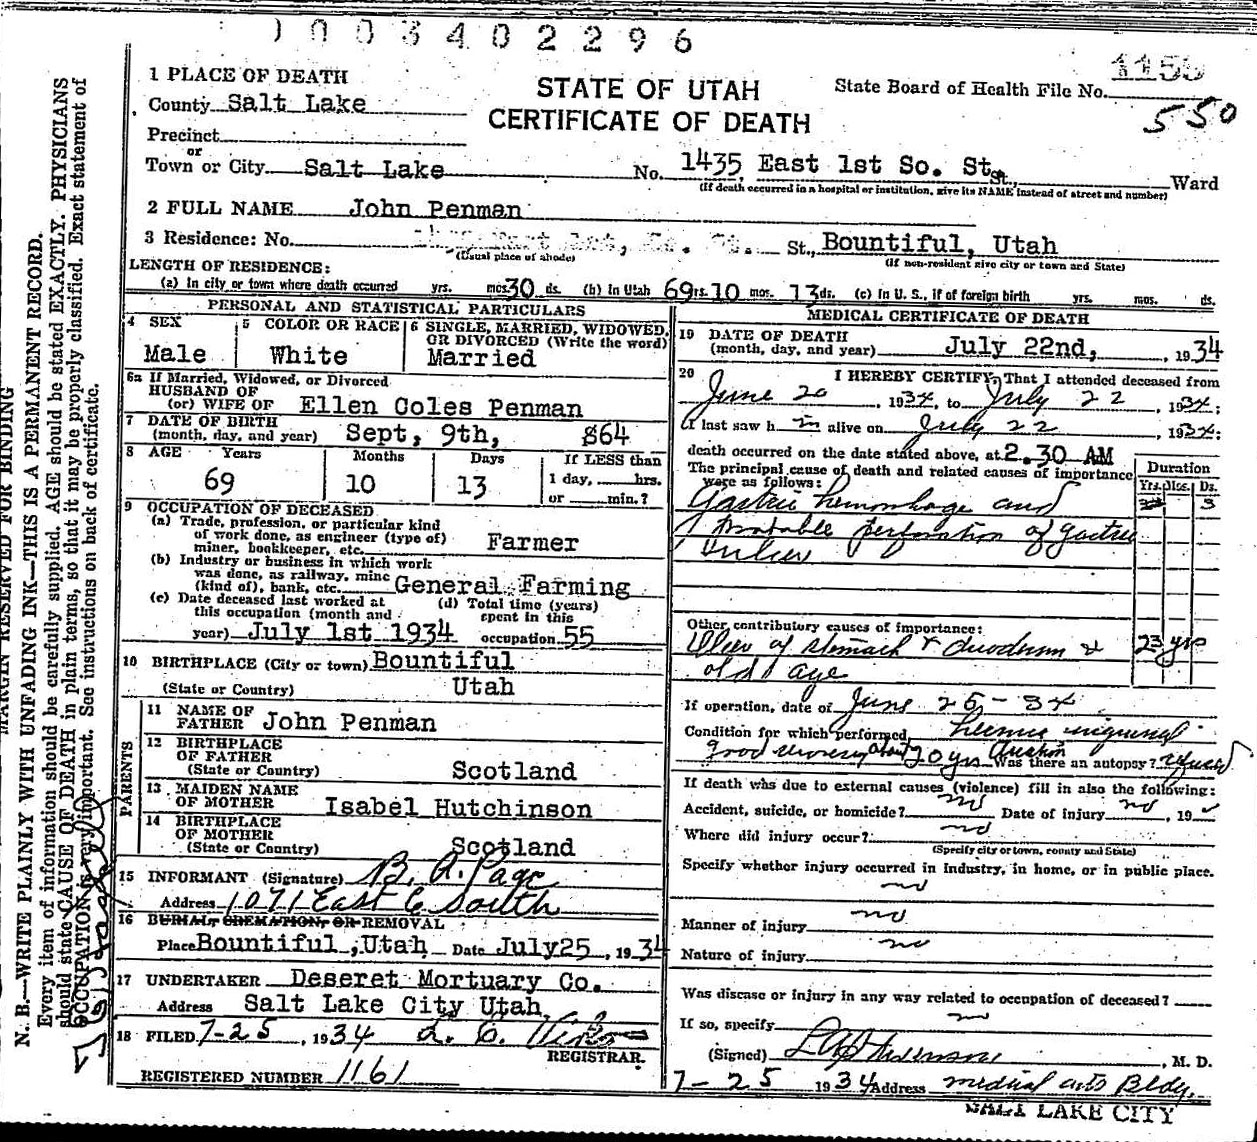 1003402296
1 PLACE OF DEATH
County Salt Lake
Precinct
or
Town or City Salt Lake
STATE OF UTAH
CERTIFICATE OF DEATH
State Board of Health File No.
550
No. 1435 East 1st So. St. St., Ward
(If death occurred in a hospital or institution, give its NAME instead of street and number)
2 FULL NAME John Penman
3 Residence: No. St., Bountiful, Utah
(Usual place of abode) (If non-resident give city or town and State)
LENGTH OF RESIDENCE:
(a) In city or town where death occurred yrs. mos. 30 ds. (b) In Utah 69 yrs. 10 mos. 13 ds. (c) In U. S., if of foreign birth yrs. mos. ds.
PERSONAL AND STATISTICAL PARTICULARS
4 SEX
Male
5 COLOR OR RACE
White
6 SINGLE, MARRIED, WIDOWED,
OR DIVORCED (Write the word)
Married
6a If Married, Widowed, or Divorced
HUSBAND OF
(or) WIFE OF Ellen Coles Penman
7 DATE OF BIRTH
(month, day, and year) Sept, 9th, 864
8 AGE Years Months Days If LESS than
69 10 13 1 day, hrs.
or min.?
9 OCCUPATION OF DECEASED
(a) Trade, profession, or particular kind
of work done, as engineer (type of)
miner, bookkeeper, etc. Farmer
(b) Industry or business in which work
was done, as railway, mine
(kind of), bank, etc. General Farming
(c) Date deceased last worked at
this occupation (month and
year) July 1st 1934
(d) Total time (years)
spent in this
occupation 55
10 BIRTHPLACE (City or town) Bountiful
(State or Country) Utah
PARENTS
11 NAME OF
FATHER John Penman
12 BIRTHPLACE
OF FATHER
(State or Country) Scotland
13 MAIDEN NAME
OF MOTHER Isabel Hutchinson
14 BIRTHPLACE
OF MOTHER
(State or Country) Scotland
15 INFORMANT (Signature) B. A. Page
Address 1071 East 6 South
16 BURIAL, CREMATION, OR REMOVAL
Place Bountiful, Utah Date July 25, 1934
17 UNDERTAKER Deseret Mortuary Co.
Address Salt Lake City Utah
18 FILED 7-25, 1934
REGISTRAR.
REGISTERED NUMBER 1161
MEDICAL CERTIFICATE OF DEATH
19 DATE OF DEATH
(month, day, and year) July 22nd, , 1934
20 I HEREBY CERTIFY, That I attended deceased from
June 20, 1934, to July 22, 1934;
I last saw h im alive on July 22, 1934;
death occurred on the date stated above, at 2.30 AM
The principal cause of death and related causes of importance
were as follows:
Duration
Yrs. Mos. Ds.
3
Gastric hemorrhage and
Probable perforation of gastric
ulcer
Other contributory causes of importance:
Ulcer of stomach & duodenum & 23 yrs
old age
If operation, date of June 25-34
Condition for which performed hernia inguinal
good recovery about 20 yrs duration Was there an autopsy? refused
If death was due to external causes (violence) fill in also the following:
Accident, suicide, or homicide? no Date of injury no, 19
Where did injury occur? no
(Specify city or town, county and State)
Specify whether injury occurred in industry, in home, or in public place.
no
Manner of injury no
Nature of injury no
Was disease or injury in any way related to occupation of deceased?
If so, specify no
(Signed) , M. D.
7-25 1934 Address medical arts Bldg.
SALT LAKE CITY
MARGIN RESERVED FOR BINDING
N. B.—WRITE PLAINLY WITH UNFADING INK—THIS IS A PERMANENT RECORD.
Every item of information should be carefully supplied. AGE should be stated EXACTLY. PHYSICIANS
should state CAUSE OF DEATH in plain terms, so that it may be properly classified. Exact statement of
OCCUPATION is very important. See instructions on back of certificate.